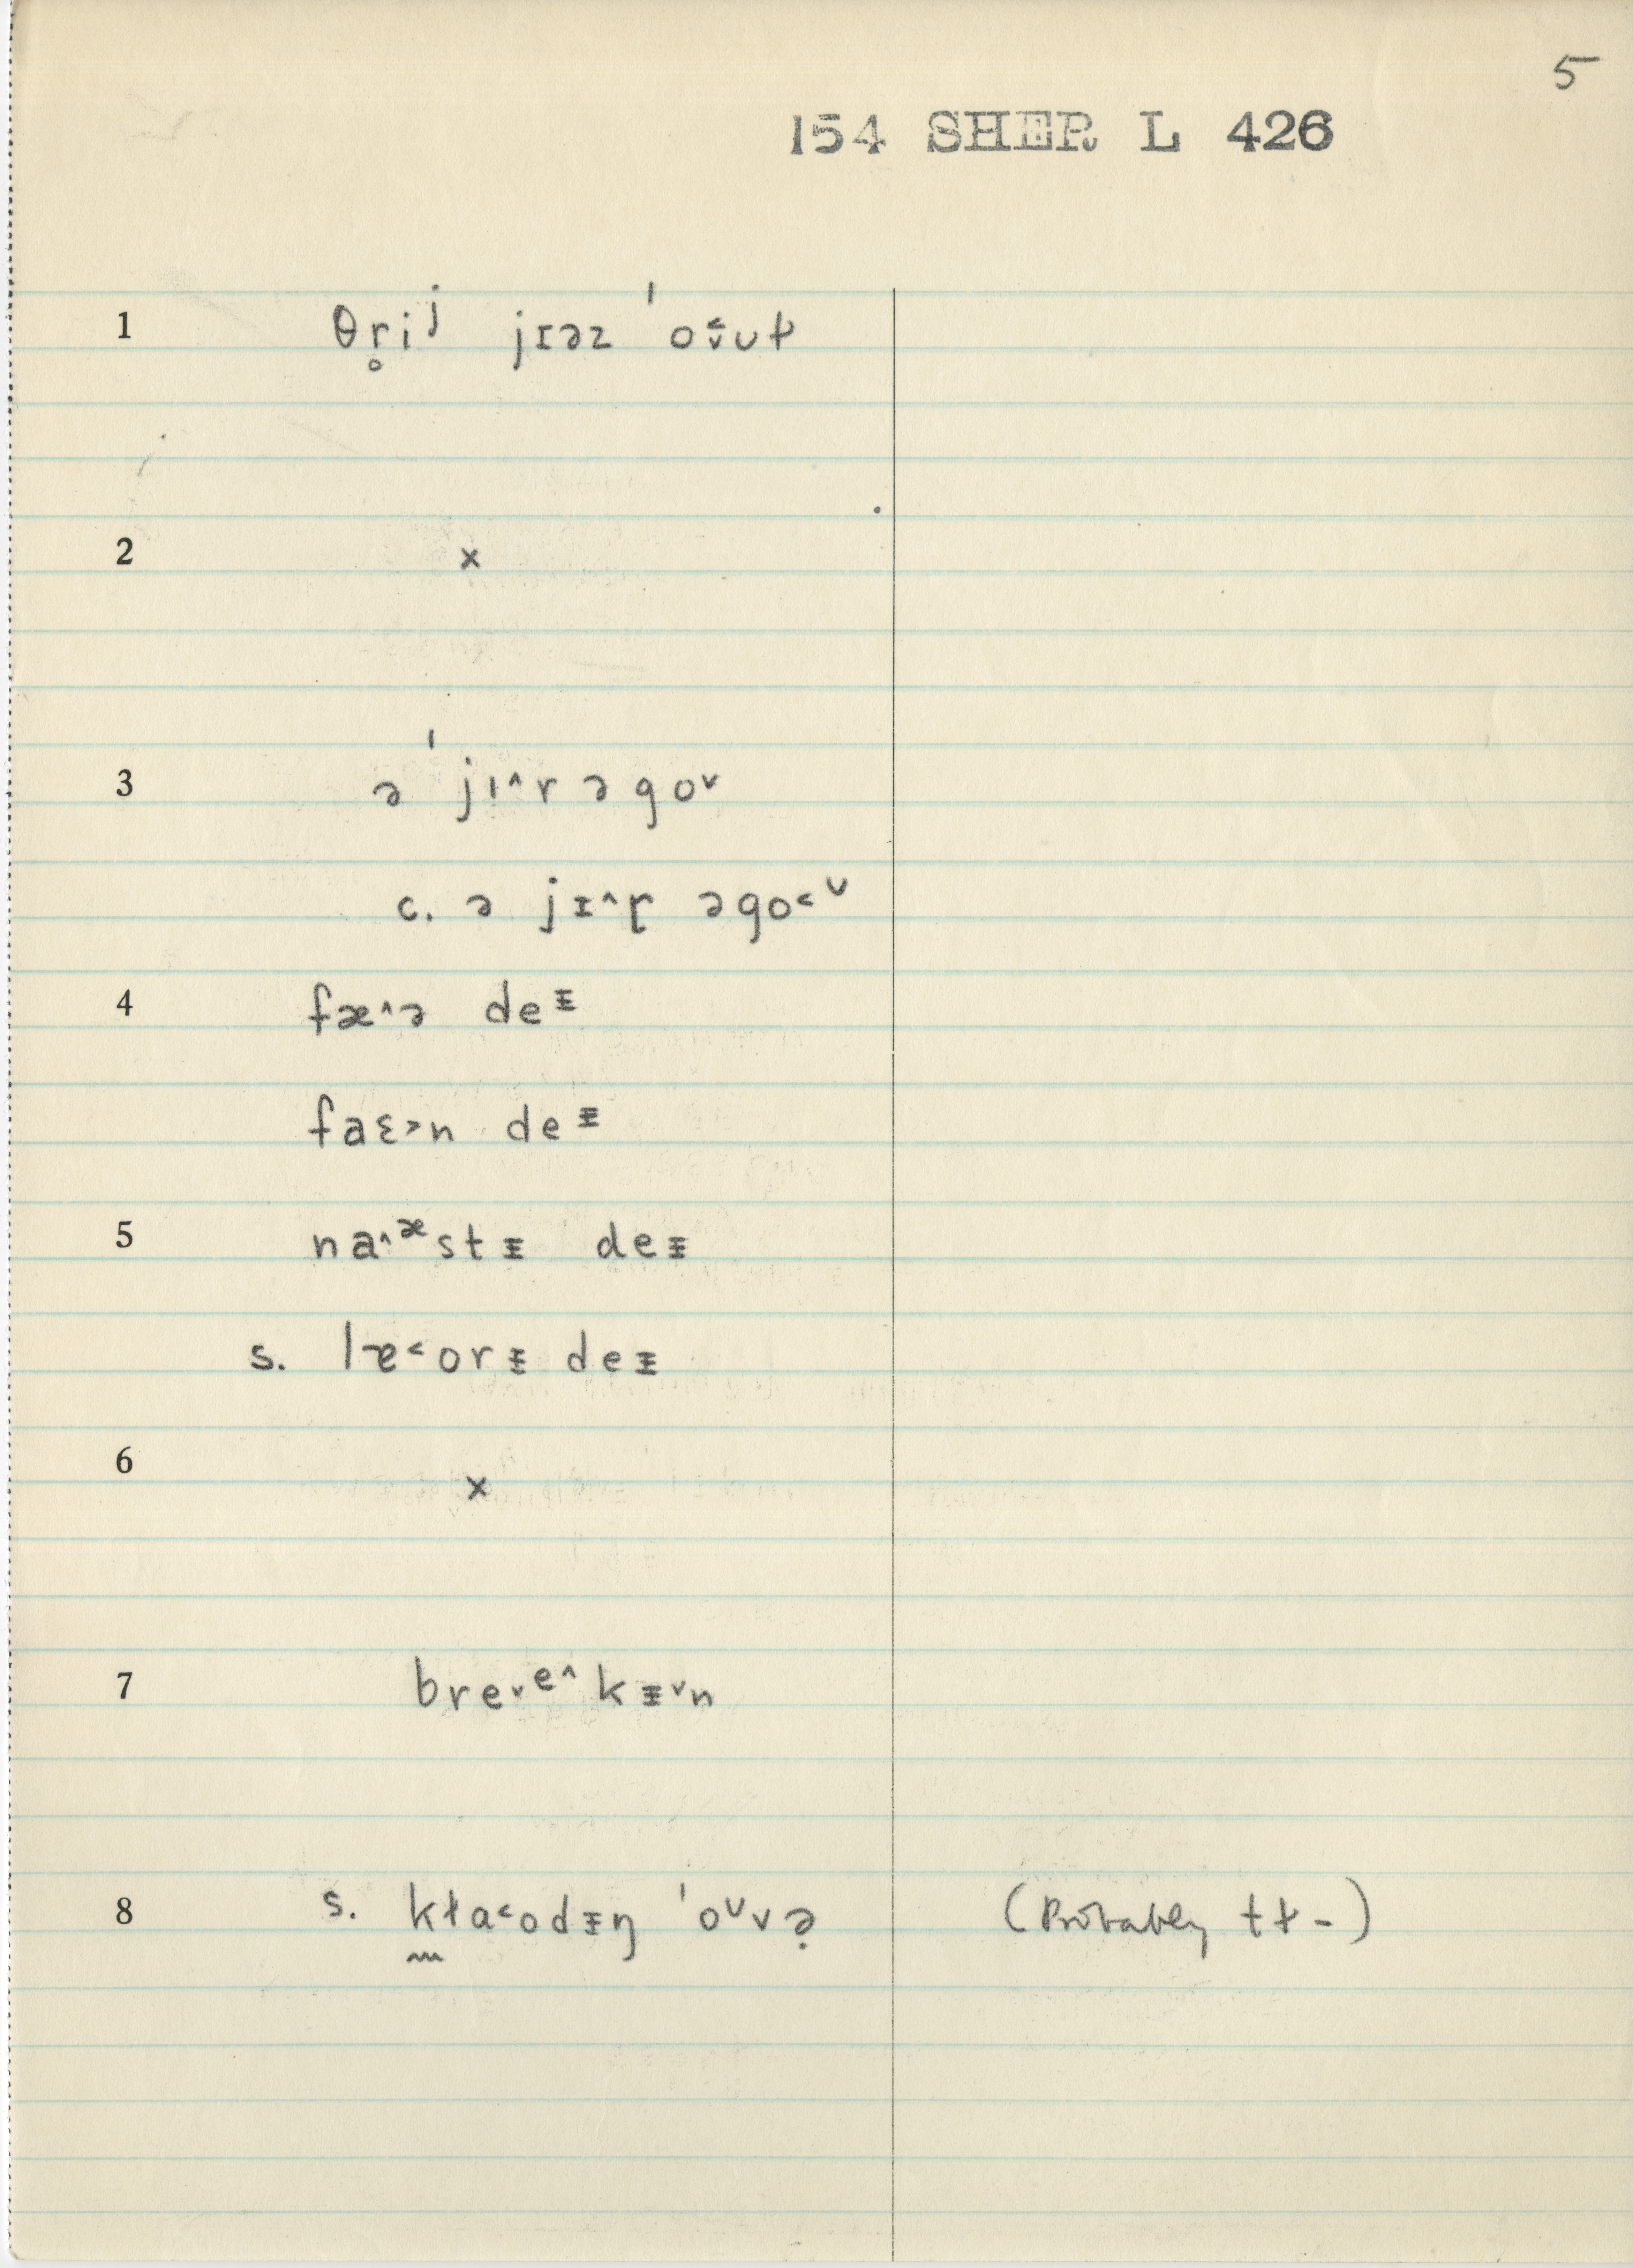 5
154 SHER L 426
1 θr̥iʲ jɪəz ˈoˇ˂ut
2 x
3 ə ˈjı˄r əgoˇ
c. ə jɪ˄ɽ əgo˂ᵛ
4 fæ˄ə deᵻ
faɛ˃n deᵻ
5 na˄ᵆstᵻ deᵻ
s. læ˂orᵻ deᵻ
6 x
7 breˇᵉ˄kᵻˇn
8 s. kɫa˂odᵻŋ ˈoᵛvə̣ (Probably tɫ-)